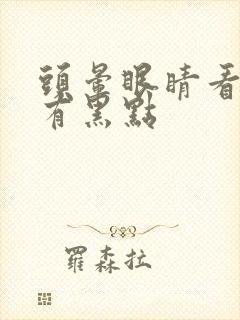 頭暈眼睛看
有黑點
羅森拉